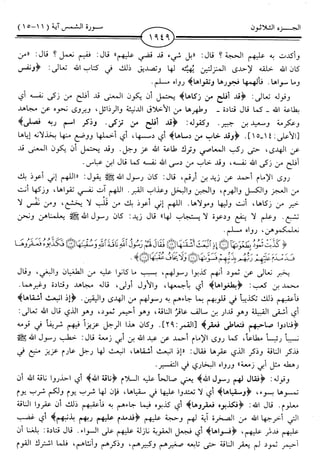 الجـــزء الثلاثـون
١٩٤٩
سورة الشمس آية (١١-١٥)
وأكدت به عليهم الحجة ؟ قال: «بل شيء قد قضي عليهم» قال: ففيم نعمل ؟ قال: «من
كان الله خلقه لإحدى المنزلتين يُهيئه لها وتصديق ذلك في كتاب الله تعالى: ﴿ونفس
وما سواها. فألهمها فجورها وتقواها﴾ رواه مسلم.
وقوله تعالى: ﴿قد أفلح من زكاها﴾ يحتمل أن يكون المعنى قد أفلح من زكى نفسه أي
بطاعة الله ـ كما قال قتادة ـ وطهرها من الأخلاق الدنيئة والرذائل، ويروى نحوه عن مجاهد
وعكرمة وسعيد بن جبير. وكقوله: ﴿قد أفلح من تزكى. وذكر اسم ربه فصلى﴾
[الأعلى: ١٤ـ١٥]. ﴿وقد خاب من دساها﴾ أي دسسها، أي أخملها ووضع منها بخذلانه إياها
عن الهدى، حتى ركب المعاصي وترك طاعة الله عز وجل. وقد يحتمل أن يكون المعنى قد
أفلح من زكى الله نفسه، وقد خاب من دسى الله نفسه كما قال ابن عباس.
روى الإمام أحمد عن زيد بن أرقم، قال: كان رسول الله ﷺ يقول: «اللهم إني أعوذ بك
من العجز والكسل والهرم، والجبن والبخل وعذاب القبر. اللهم آت نفسي تقواها، وزكها أنت
خير من زكاها، أنت وليها ومولاها. اللهم إني أعوذ بك من قلب لا يخشع، ومن نفس لا
تشبع. وعلم لا ينفع ودعوة لا يستجاب لها» قال زيد: كان رسول الله ﷺ يعلمناهن ونحن
نعلمكموهن، رواه مسلم.
﴿كذبت ثمود بطغواها إذ انبعث أشقاها فقال لهم رسول الله ناقة الله وسقياها فكذبوه فعقروها
فدمدم عليهم ربهم بذنبهم فسواها ولا يخاف عقباها﴾
يخبر تعالى عن ثمود أنهم كذبوا رسولهم، بسبب ما كانوا عليه من الطغيان والبغي، وقال
محمد بن كعب: ﴿بطغواها﴾ أي بأجمعها، والأول أولى، قاله مجاهد وقتادة وغيرهما.
فأعقبهم ذلك تكذيباً في قلوبهم بما جاءهم به رسولهم من الهدى واليقين. ﴿إذ انبعث أشقاها﴾
أي أشقى القبيلة وهو قدار بن سالف عاقر الناقة، وهو أحيمر ثمود، وهو الذي قال الله تعالى:
﴿فنادوا صاحبهم فتعاطى فعقر﴾ [القمر: ٢٩]. وكان هذا الرجل عزيزاً فيهم شريفاً في قومه
نسيباً رئيساً مطاعاً، كما روى الإمام أحمد عن عبد الله بن أبي زمعة قال: خطب رسول الله ﷺ
فذكر الناقة وذكر الذي عقرها فقال: «إذ انبعث أشقاها، انبعث لها رجل عارم عزيز منيع في
رهطه مثل أبي زمعة» ورواه البخاري في التفسير.
وقوله: ﴿فقال لهم رسول الله﴾ يعني صالحاً عليه السلام ﴿ناقة الله﴾ أي احذروا ناقة الله أن
تمسوها بسوء، ﴿وسقياها﴾ أي لا تعتدوا عليها في سقياها، فإن لها شرب يوم ولكم شرب يوم
معلوم. قال الله: ﴿فكذبوه فعقروها﴾ أي كذبوه فيما جاءهم به فأعقبهم ذلك أن عقروا الناقة
التي أخرجها الله من الصخرة آية لهم وحجة عليهم ﴿فدمدم عليهم ربهم بذنبهم﴾ أي غضب
عليهم فدمر عليهم، ﴿فسواها﴾ أي فجعل العقوبة نازلة عليهم على السواء. قال قتادة: بلغنا أن
أحيمر ثمود لم يعقر الناقة حتى تابعه صغيرهم وكبيرهم، وذكرهم وأنثاهم، فلما اشترك القوم